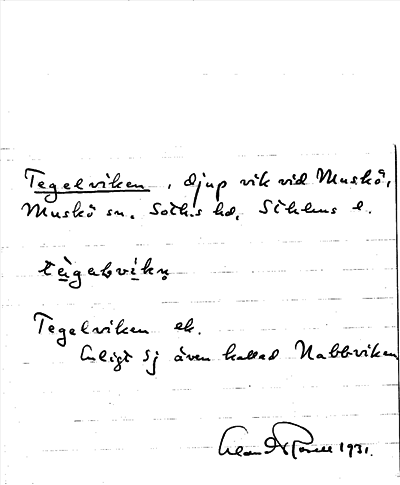 Tegelviken, djup vik vid Muskö,
Muskö sn. Soth.s hd, Sthlms l.
tègəlvìkn̥
Tegelviken ek.
Enligt Sj även kallad Nabbviken
1931.